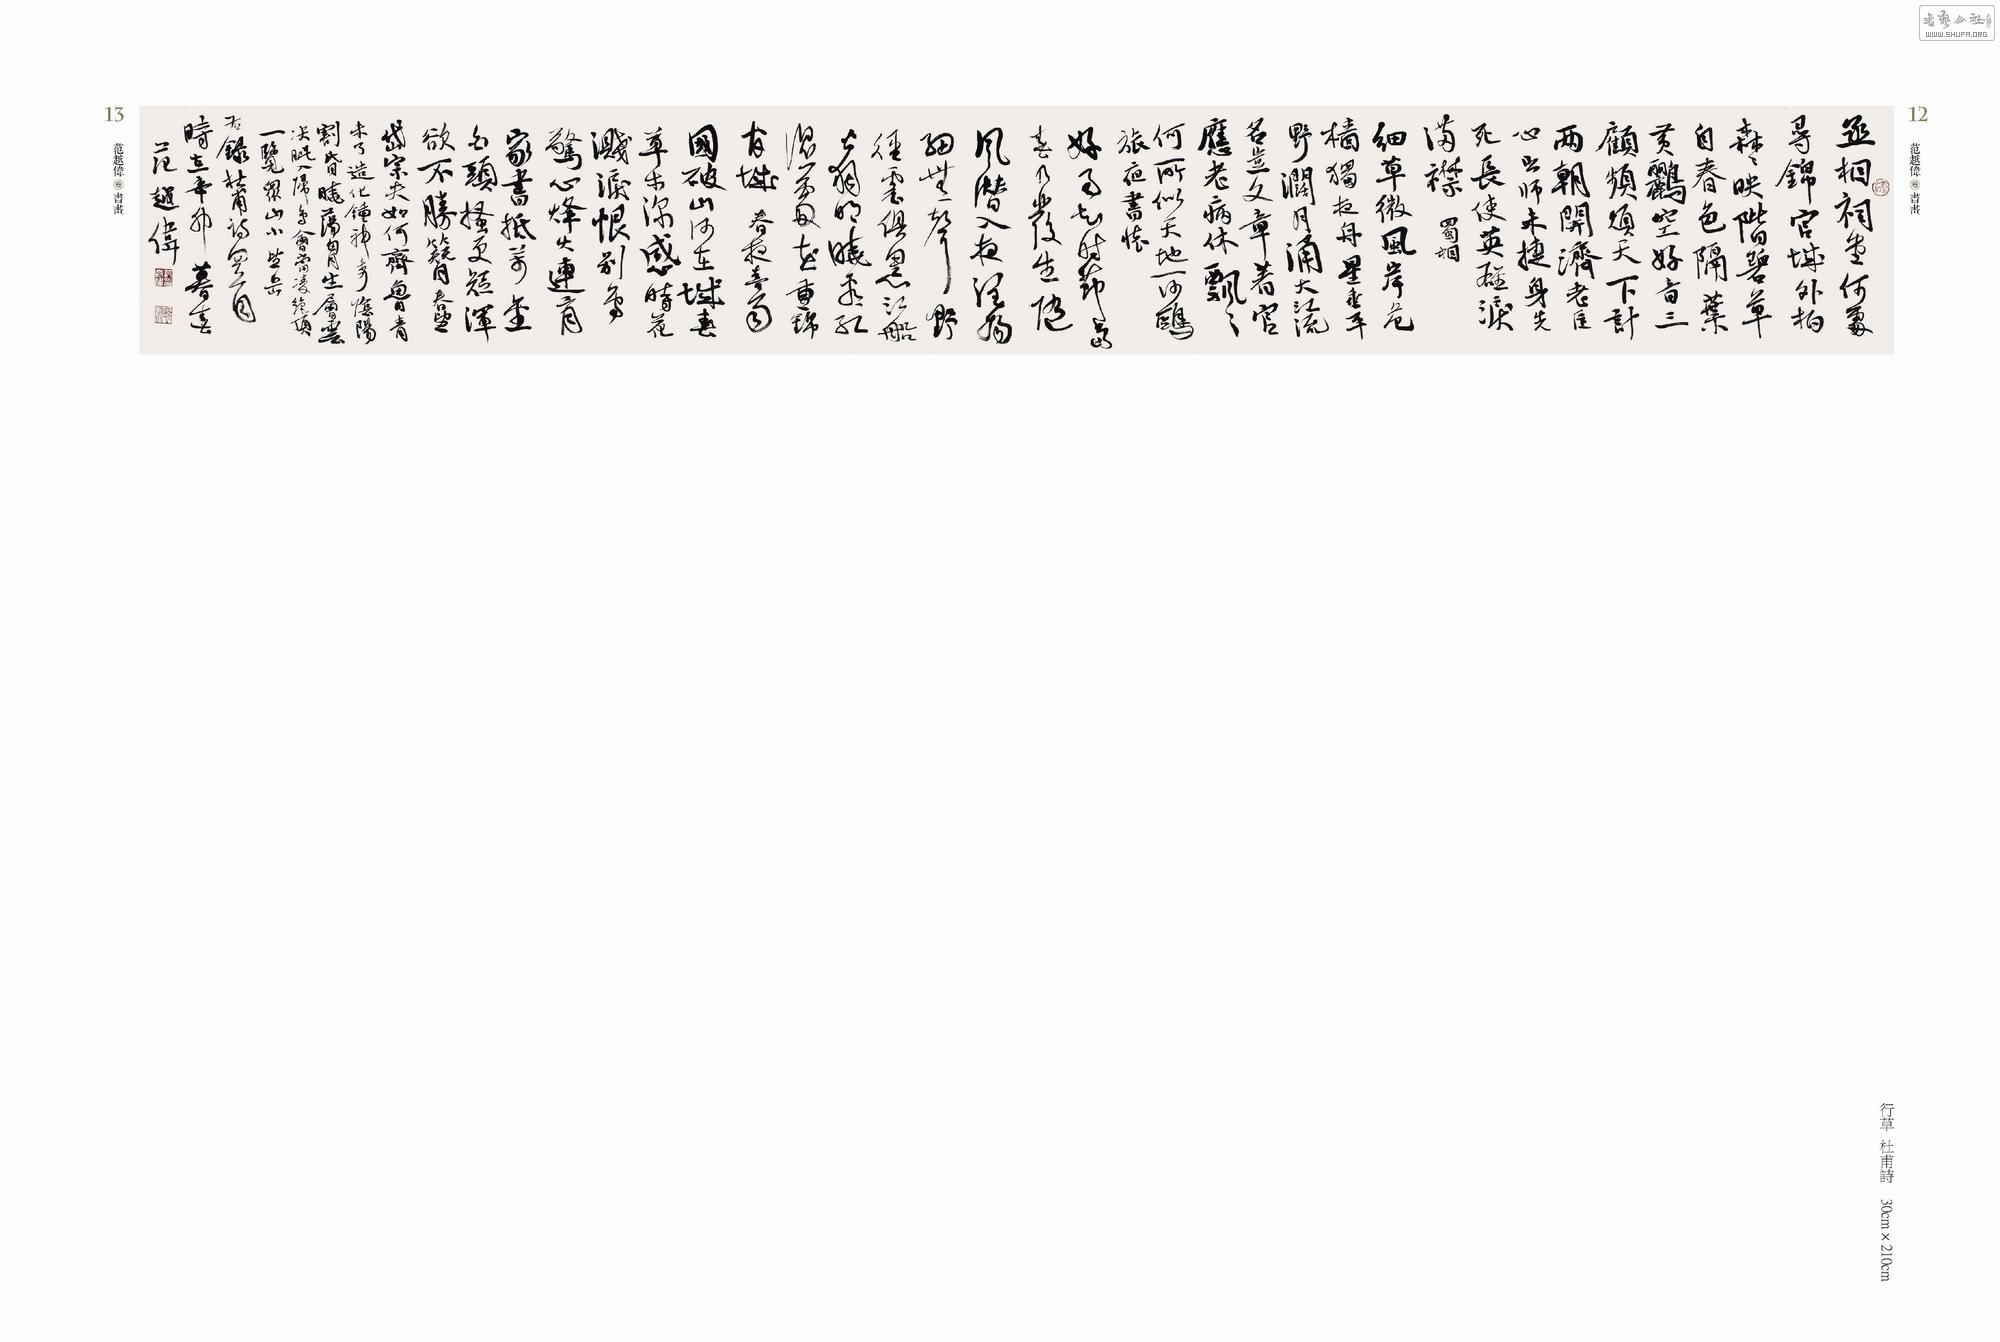 書藝公社
WWW.SHUFA.ORG
12
范越偉 卷 書畫
丞相祠堂何處
尋錦官城外柏
森〻映階碧草
自春色隔葉
黃鸝空好音三
顧頻煩天下計
兩朝開濟老臣
心出師未捷身先
死長使英雄淚
滿襟 蜀相
細草微風岸危
檣獨夜舟星垂平
野闊月涌大江流
名豈文章著官
應老病休飄〻
何所似天地一沙鷗
旅夜書懷
好雨知時節當
春乃發生隨
風潛入夜潤物
細無聲野
徑雲俱黑江船
火獨明曉看紅
濕處花重錦
官城 春夜喜雨
國破山河在城春
草木深感時花
濺淚恨別鳥
驚心烽火連三月
家書抵萬金
白頭搔更短渾
欲不勝簪 春望
岱宗夫如何齊魯青
未了造化鍾神秀陰陽
割昏曉蕩胸生層雲
決眥入歸鳥會當凌絕頂
一覽眾山小 望岳
右錄杜甫詩四首
時在辛卯暮春
范越偉
13
范越偉 卷 書畫
行草 杜甫詩 30cm×210cm